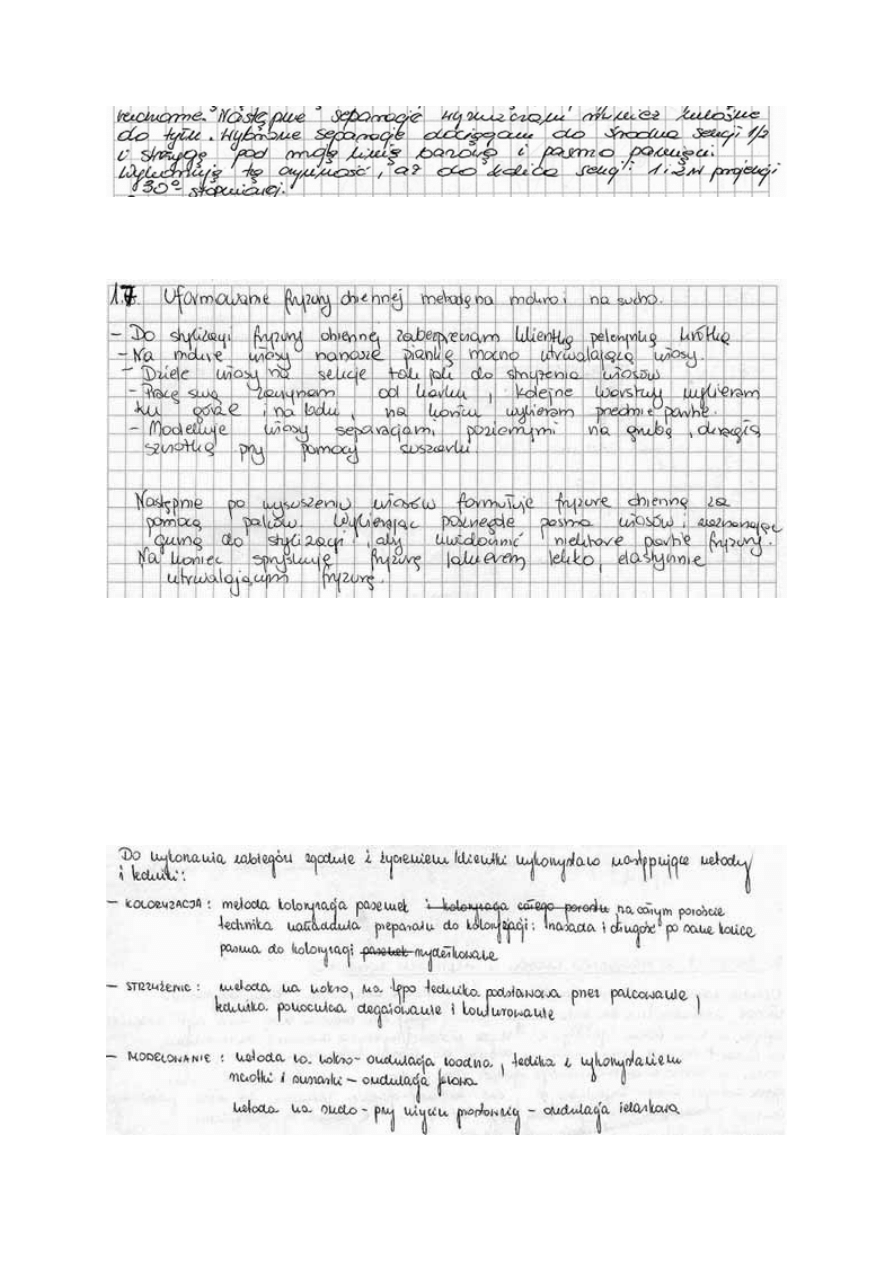 ruchome. Następne separacje wyznaczam również ukośnie
do tyłu. Wybrane separacje dociągam do środka sekcji 1/2
i strzygę pod moją linię bazową i pasmo pamięci.
Wykonuję tę czynność, aż do końca sekcji 1 i 2 w projekcji
30° stopniowej.
1.7. Uformowanie fryzury dziennej metodą na mokro i na sucho.
- Do stylizacji fryzury dziennej zabezpieczam klientkę pelerynką krótką
- Na mokre włosy nanoszę piankę mocno utrwalającą włosy.
- Dzielę włosy na sekcje tak jak do strzyżenia włosów
- Pracę swą zaczynam od karku, kolejne warstwy wybieram
ku górze i na boku, na końcu wybieram przednie partie.
- Modeluje włosy separacjami poziomymi na grubą, okrągłą
szczotkę przy pomocy suszarki.
Następnie po wysuszeniu włosów formułuje fryzurę dzienną za
pomocą palców. Wybierając poszczególne pasma włosów i
gumę do stylizacji, aby uwidocznić niektóre partie fryzury.
Na koniec spryskuję fryzurę lakierem lekko, elastycznie
utrwalającym fryzurę.
Do wykonania zabiegów zgodnie z życzeniem klientki wykorzystano następujące metody
i techniki:
- KOLORYZACJA: metoda koloryzacja pasemek i koloryzacja całego porostu na całym poroście
technika nakładania preparatu do koloryzacji: nasada i długość po same końce
pasma do koloryzacji pasemek mydełkowane
- STRZYŻENIE: metoda na mokro, na tępo technika podstawowa przez palcowanie,
technika pomocnicza degażowanie i konturowanie
- MODELOWANIE: metoda na mokro - ondulacja wodna, technika z wykorzystaniem
szczotki i suszarki -
metoda na sucho - przy użyciu prostownicy - ondulacja żelazkowa